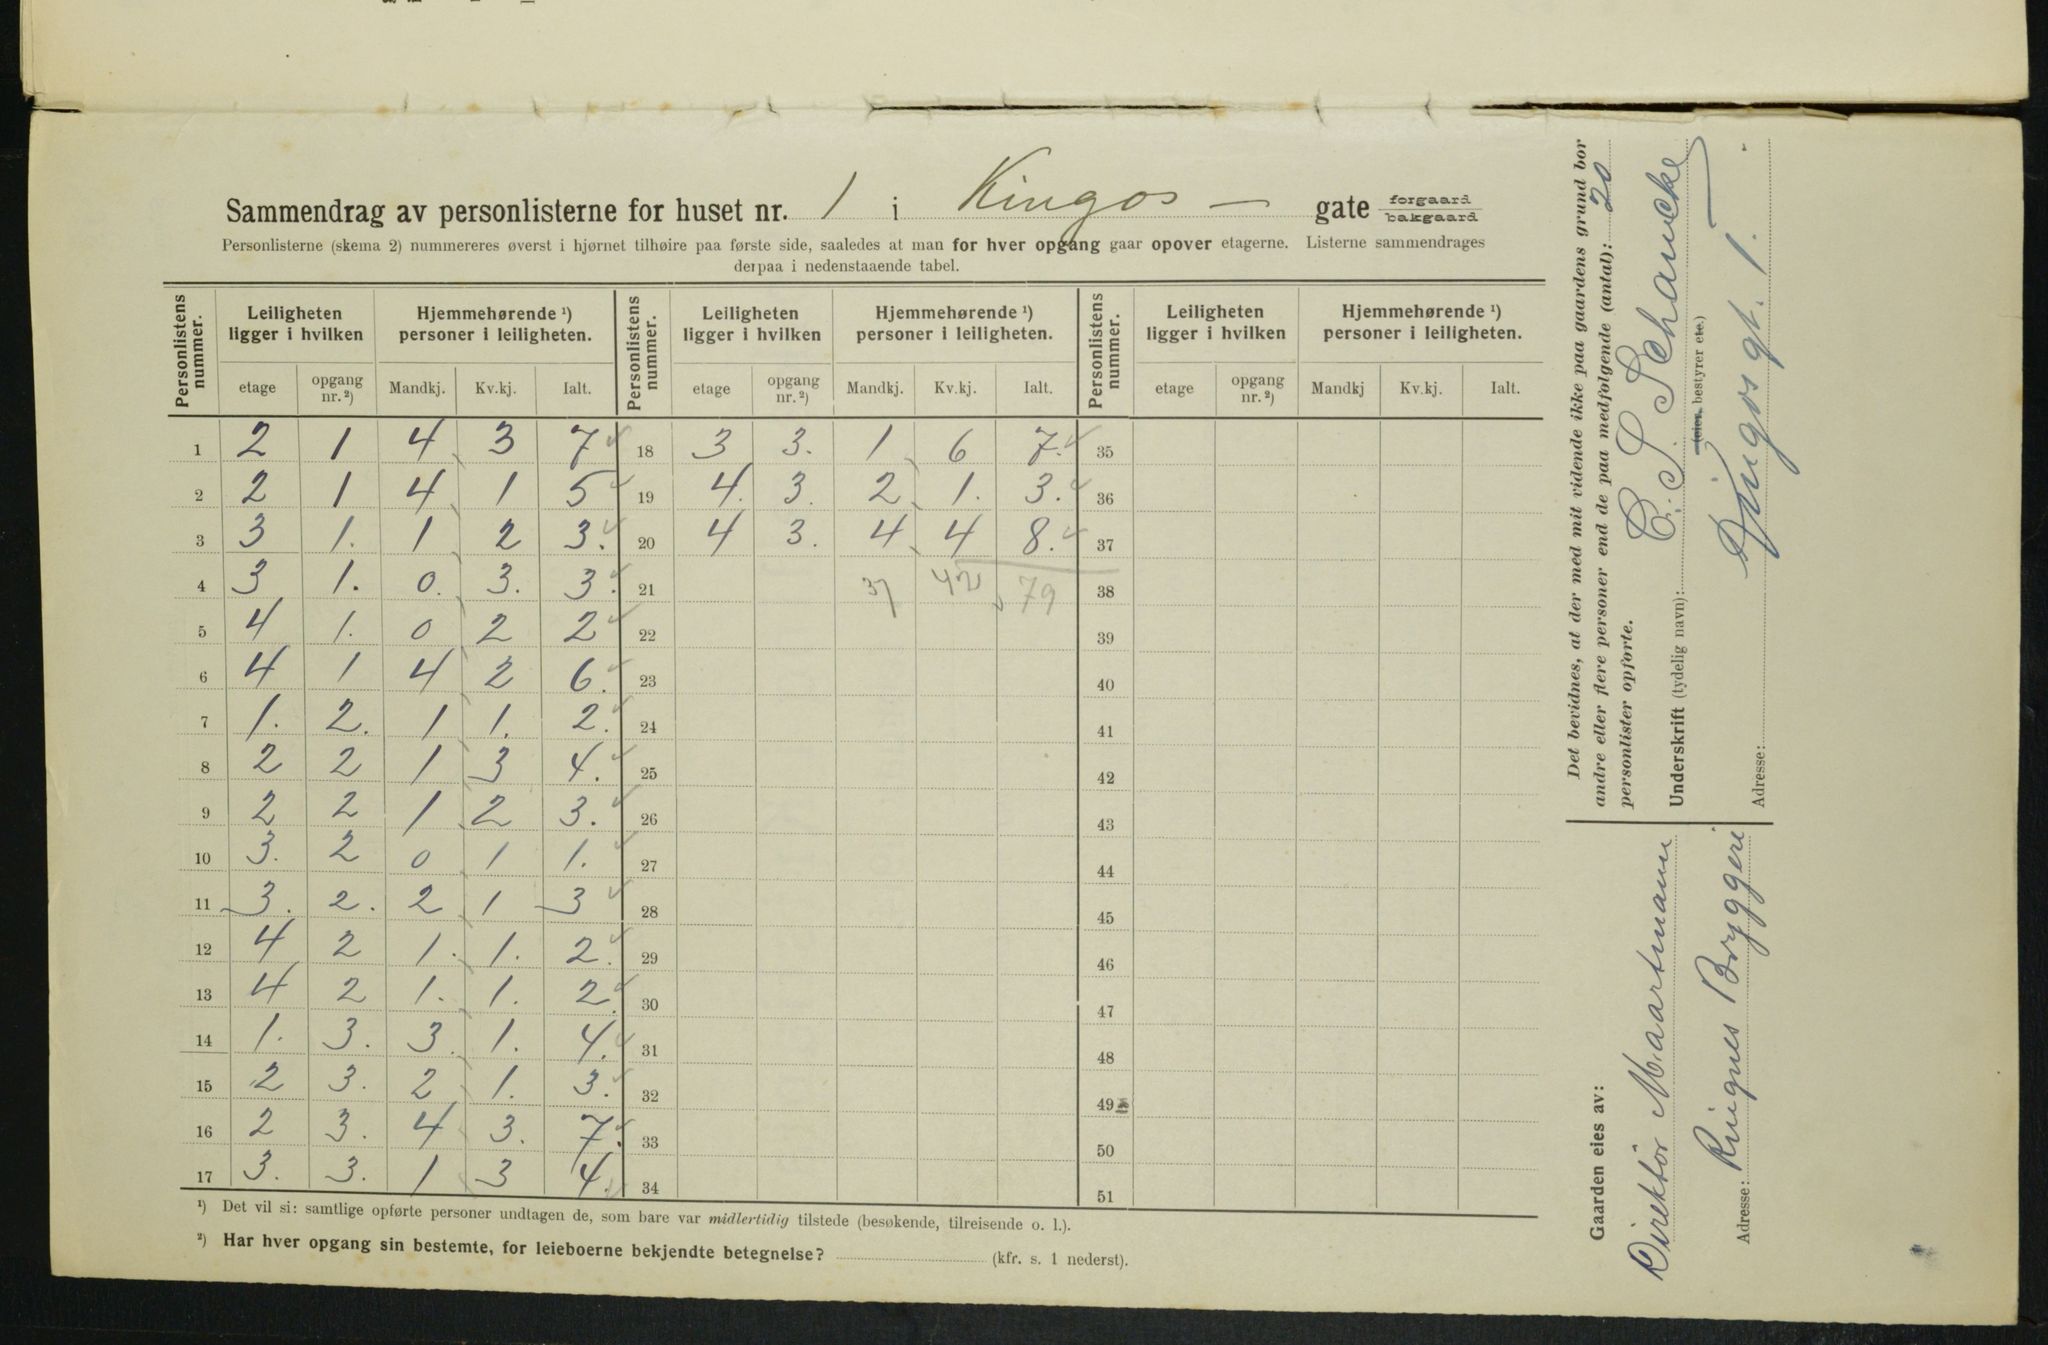 Sammendrag av personlisterne for huset nr. 1 i Kingos - gate forgaard bakgaard
Personlisterne (skema 2) nummereres øverst i hjørnet tilhøire paa første side, saaledes at man for hver opgang gaar opover etagerne. Listerne sammendrages
derpaa i nedenstaaende tabel.
Personlistens nummer. Leiligheten ligger i hvilken Hjemmehørende ¹) personer i leiligheten. Personlistens nummer. Leiligheten ligger i hvilken Hjemmehørende ¹) personer i leiligheten. Personlistens nummer. Leiligheten ligger i hvilken Hjemmehørende ¹) personer i leiligheten.
etage opgang nr. ²) Mandkj. Kv.kj. Ialt. etage opgang nr. ²) Mandkj. Kv.kj. Ialt. etage opgang nr. ²) Mandkj Kv.kj. Ialt.
1 2 1 4 3 7 18 3 3. 1 6 7. 35
2 2 1 4 1 5 19 4. 3. 2 1. 3. 36
3 3 1. 1 2 3. 20 4 3. 4 4 8. 37
4 3 1. 0. 3. 3. 21 37 42 79 38
5 4 1. 0 2 2 22 39
6 4 1 4 2 6. 23 40
7 1. 2. 1 1. 2. 24 41
8 2 2 1 3 4. 25 42
9 2 2 1 2 3. 26 43
10 3. 2 0 1 1. 27 44
11 3. 2. 2 1 3 28 45
12 4 2 1. 1. 2. 29 46
13 4 2 1. 1. 2. 30 47
14 1. 3. 3. 1. 4. 31 48
15 2 3. 2 1. 3. 32 49
16 2 3. 4 3. 7. 33 50
17 3. 3. 1 3 4. 34 51
¹) Det vil si: samtlige opførte personer undtagen de, som bare var midlertidig tilstede (besøkende, tilreisende o. l.).
²) Har hver opgang sin bestemte, for leieboerne bekjendte betegnelse? (kfr. s. 1 nederst).
Det bevidnes, at der med mit vidende ikke paa gaardens grund bor
andre eller flere personer end de paa medfølgende (antal): 20
personlister opførte.
Underskrift (tydelig navn): C. S. Schancke
(eier, bestyrer etc.)
Adresse: Kingosgt. 1.
Gaarden eies av:
Direktør Maartmann
Adresse: Ringnes Bryggeri